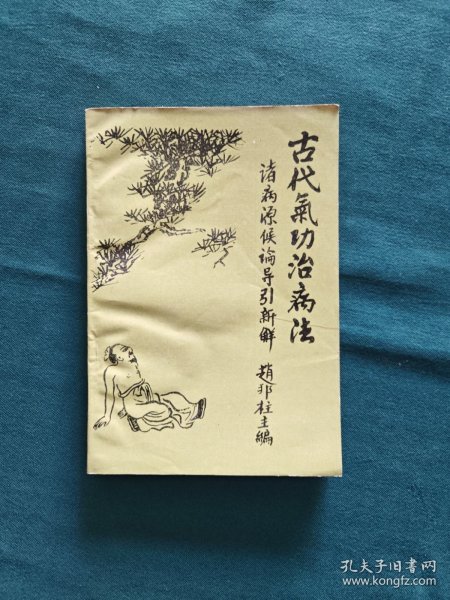 古代氣功治病法
诸病源候論导引新解
趙邦柱主編
孔夫子旧书网
www.kongfz.com